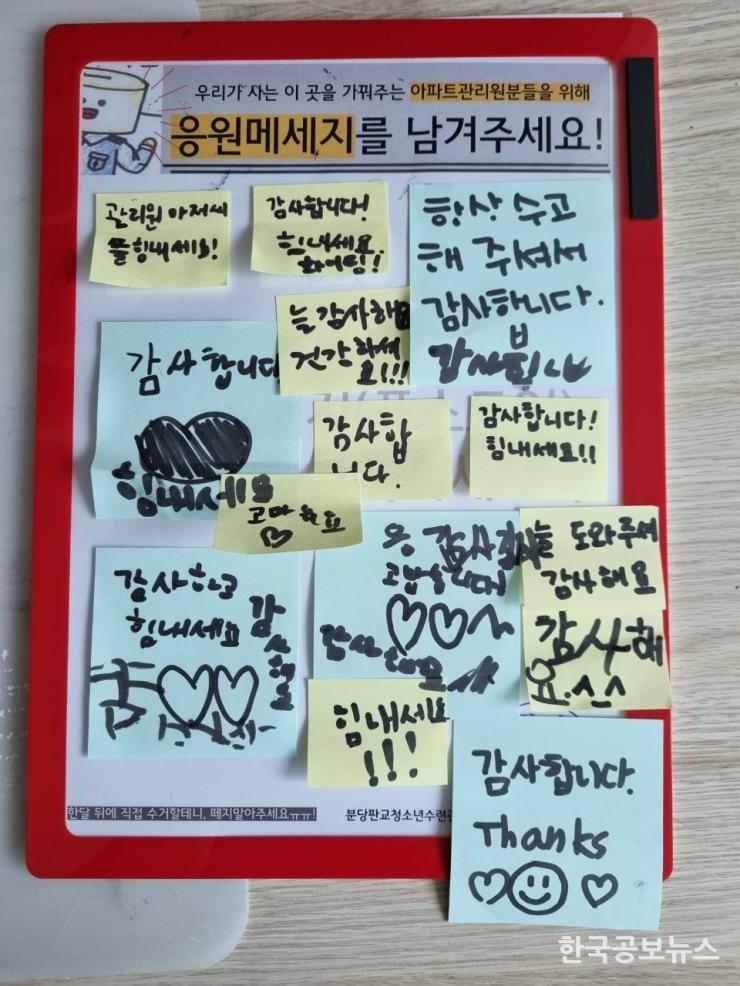 우리가 사는 이 곳을 가꿔주는 아파트관리원분들을 위해
응원메세지를 남겨주세요!
관리원 아저씨
들힘내세요!
감사합니다!
힘내세요.
화이팅!
항상 수고
해 주셔서
감사합니다.
늘 감사해요
건강하세
요!!!
감사합니다
힘내세요
감사합
니다.
감사합니다!
힘내세요!!
고마워요
감사
고맙습니다
늘 도와주셔
감사해요
감사해
요.^^
감사하고
힘내세요
감사해요
힘내세요
!!!
감사합니다.
Thanks
한달 뒤에 직접 수거할테니, 떼지말아주세요ㅠㅠ!
분당판교청소년수련관
한국공보뉴스